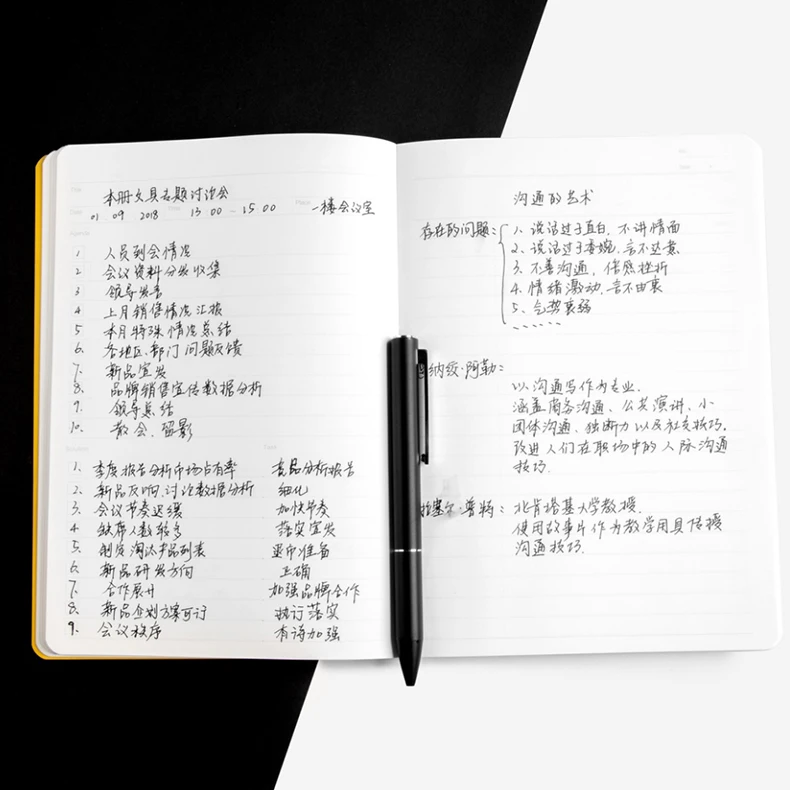 本册文具专题讨论会
01 09 2018 13 00 - 15 00 一楼会议室
1 人员到会情况
2 会议资料分发收集
3 领导发言
4 上月销售情况汇报
5 本月特殊情况总结
6. 各地区、部门问题反馈
7. 新品宣发
8. 品牌销售宣传数据分析
9. 领导总结
10. 散会、留影
1、季度报告分析市场占有率 竞品分析报告
2、新品反响、讨论数据分析 细化
3、会议节奏迟缓 加快节奏
4、缺席人数较多 落实宣发
5、制定淘汰产品列表 退市准备
6、新品研发方向 正确
7、合作展开 加强品牌合作
8、新品企划方案可行 执行落实
9、会议秩序 有待加强
沟通的艺术
存在的问题：
1、说话过于直白，不讲情面
2、说话过于委婉，言不达意
3、不善沟通，倍感挫折
4、情绪激动，言不由衷
5、气势衰弱
……
纳绞·阿勒：
以沟通写作为专业.
涵盖商务沟通、公共演讲、小
团体沟通、独断力以及社交技巧.
改进人们在职场中的人际沟通
技巧.
拉塞尔·普特：北肯塔基大学教授.
使用故事片作为教学用具传授
沟通技巧.